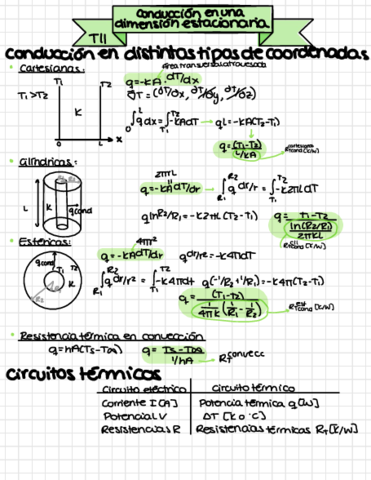 conducción en una
dimensión estacionaria
T11
conducción en distintos tipos de coordenadas
• Cartesianas:
Área transversal atravesada
q=-kA·dT/dx
∇T = (∂T/∂x, ∂T/∂y, ∂T/∂z)
T1>T2
T1
T2
K
L
x
∫₀ᴸ q dx = ∫_T1^T2 -kA dT → qL = -kA(T2-T1)
q = (T1-T2) / (L/kA)
R cond cartesianas [K/W]
• Cilíndricas:
2πrL
q=-kA dT/dr → ∫_R1^R2 q dr/r = ∫_T1^T2 -k2πL dT
q ln R2/R1 = -k2πL (T2-T1)
q = (T1-T2) / (ln(R2/R1) / 2πKL)
R cond cil [K/W]
L
K
qcond
• Esféricas:
4πr²
q=-kA dT/dr
q dr/r² = -k4π dT
∫_R1^R2 q dr/r² = ∫_T1^T2 -k4π dT
q(-1/R2+1/R1) = -k4π(T2-T1)
q = (T1-T2) / (1/4πk (1/R1 - 1/R2))
R cond esf [K/W]
qcond
T1
T2
K
• Resistencia térmica en convección
q=hA(Ts-T∞)
q = (Ts-T∞) / (1/hA) → R convecc T
circuitos térmicos
Circuito eléctrico | Circuito térmico
Corriente I [A] | Potencia térmica q [W]
Potencial V | ΔT [K o °C]
Resistencias R | Resistencias térmicas RT [K/W]